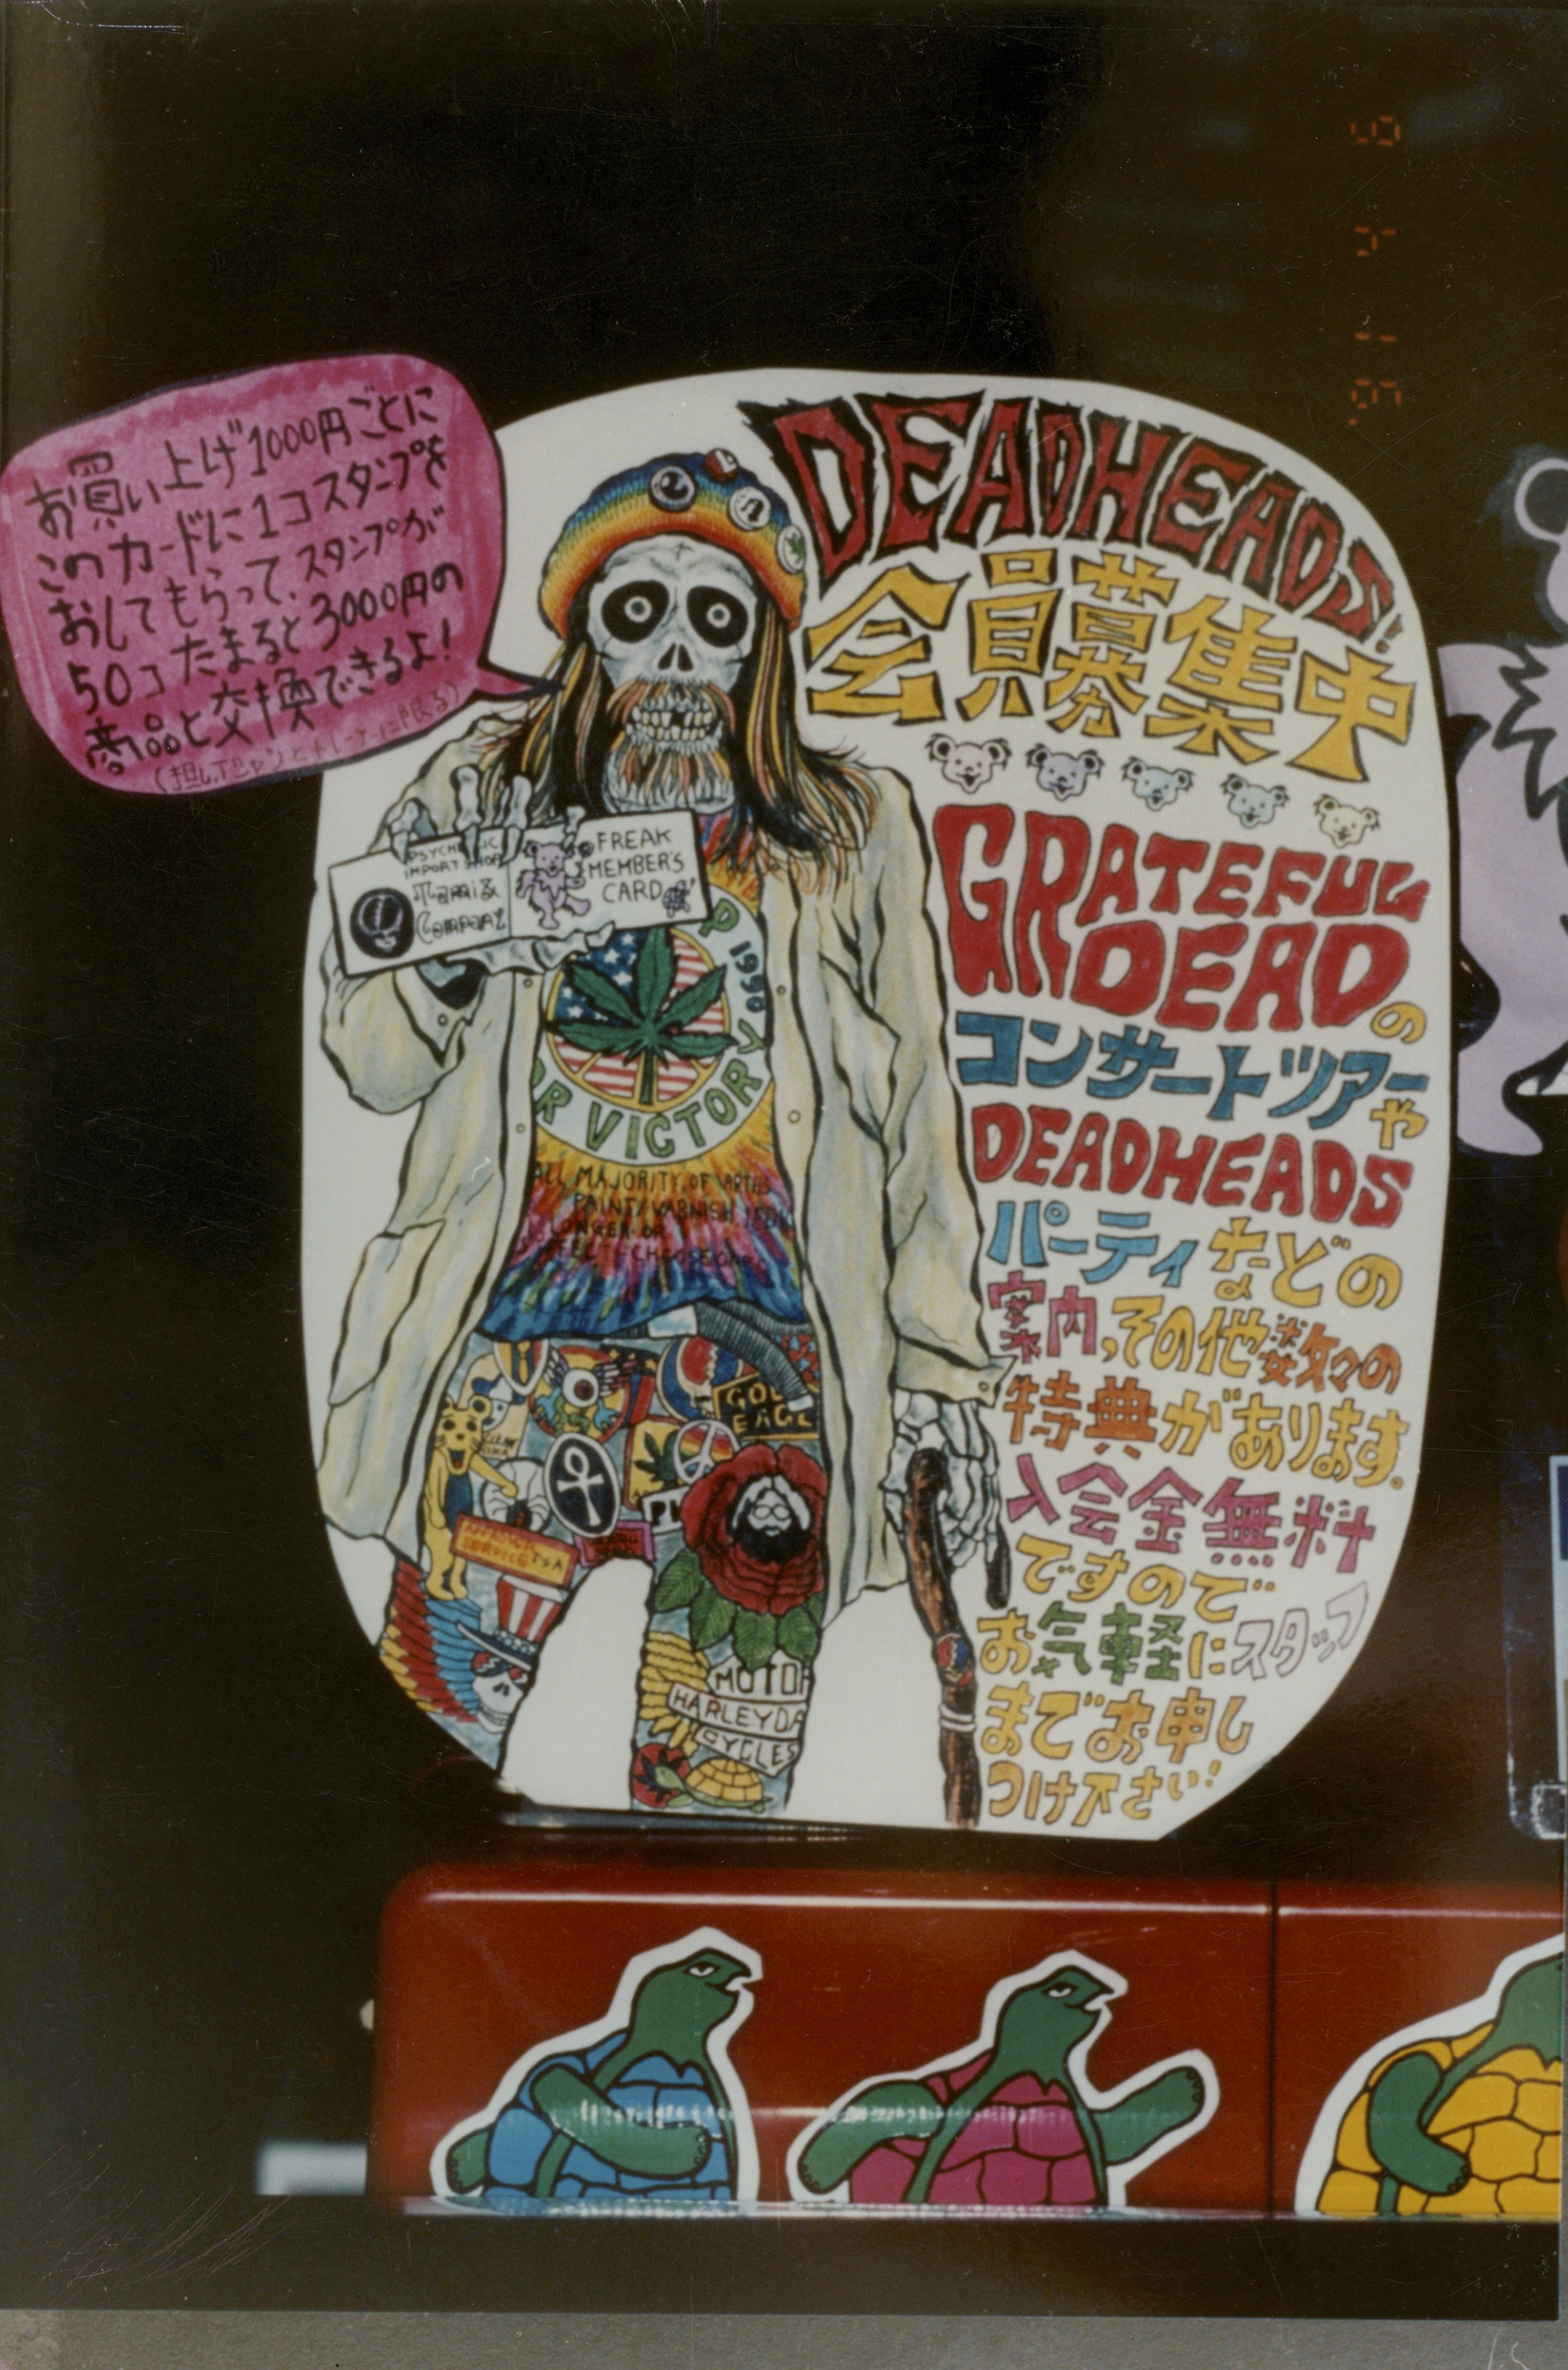 '91 4 9
お買い上げ1000円ごとに
このカードに1コスタンプを
おしてもらって、スタンプが
50コたまると3000円の
商品と交換できるよ!
(担しTシャツとトレーナーに限る)
DEADHEADS!
会員募集中
GRATEFUL
DEADの
コンサートツアーや
DEADHEADS
パーティなどの
案内,その他数々の
特典があります。
入会金無料
ですので
お気軽にスタッフ
までお申し
つけ下さい!
PSYCHE IC
IMPORT SHOP
&
COMPANY
FREAK
MEMBER'S
CARD
P
1990
OR VICTORY
ALL MAJORITY OF
PAINT/VARNISH
LONGER OR
GOL
EAGL
SERVICE USA
MOTOR
HARLEYDA
CYCLES